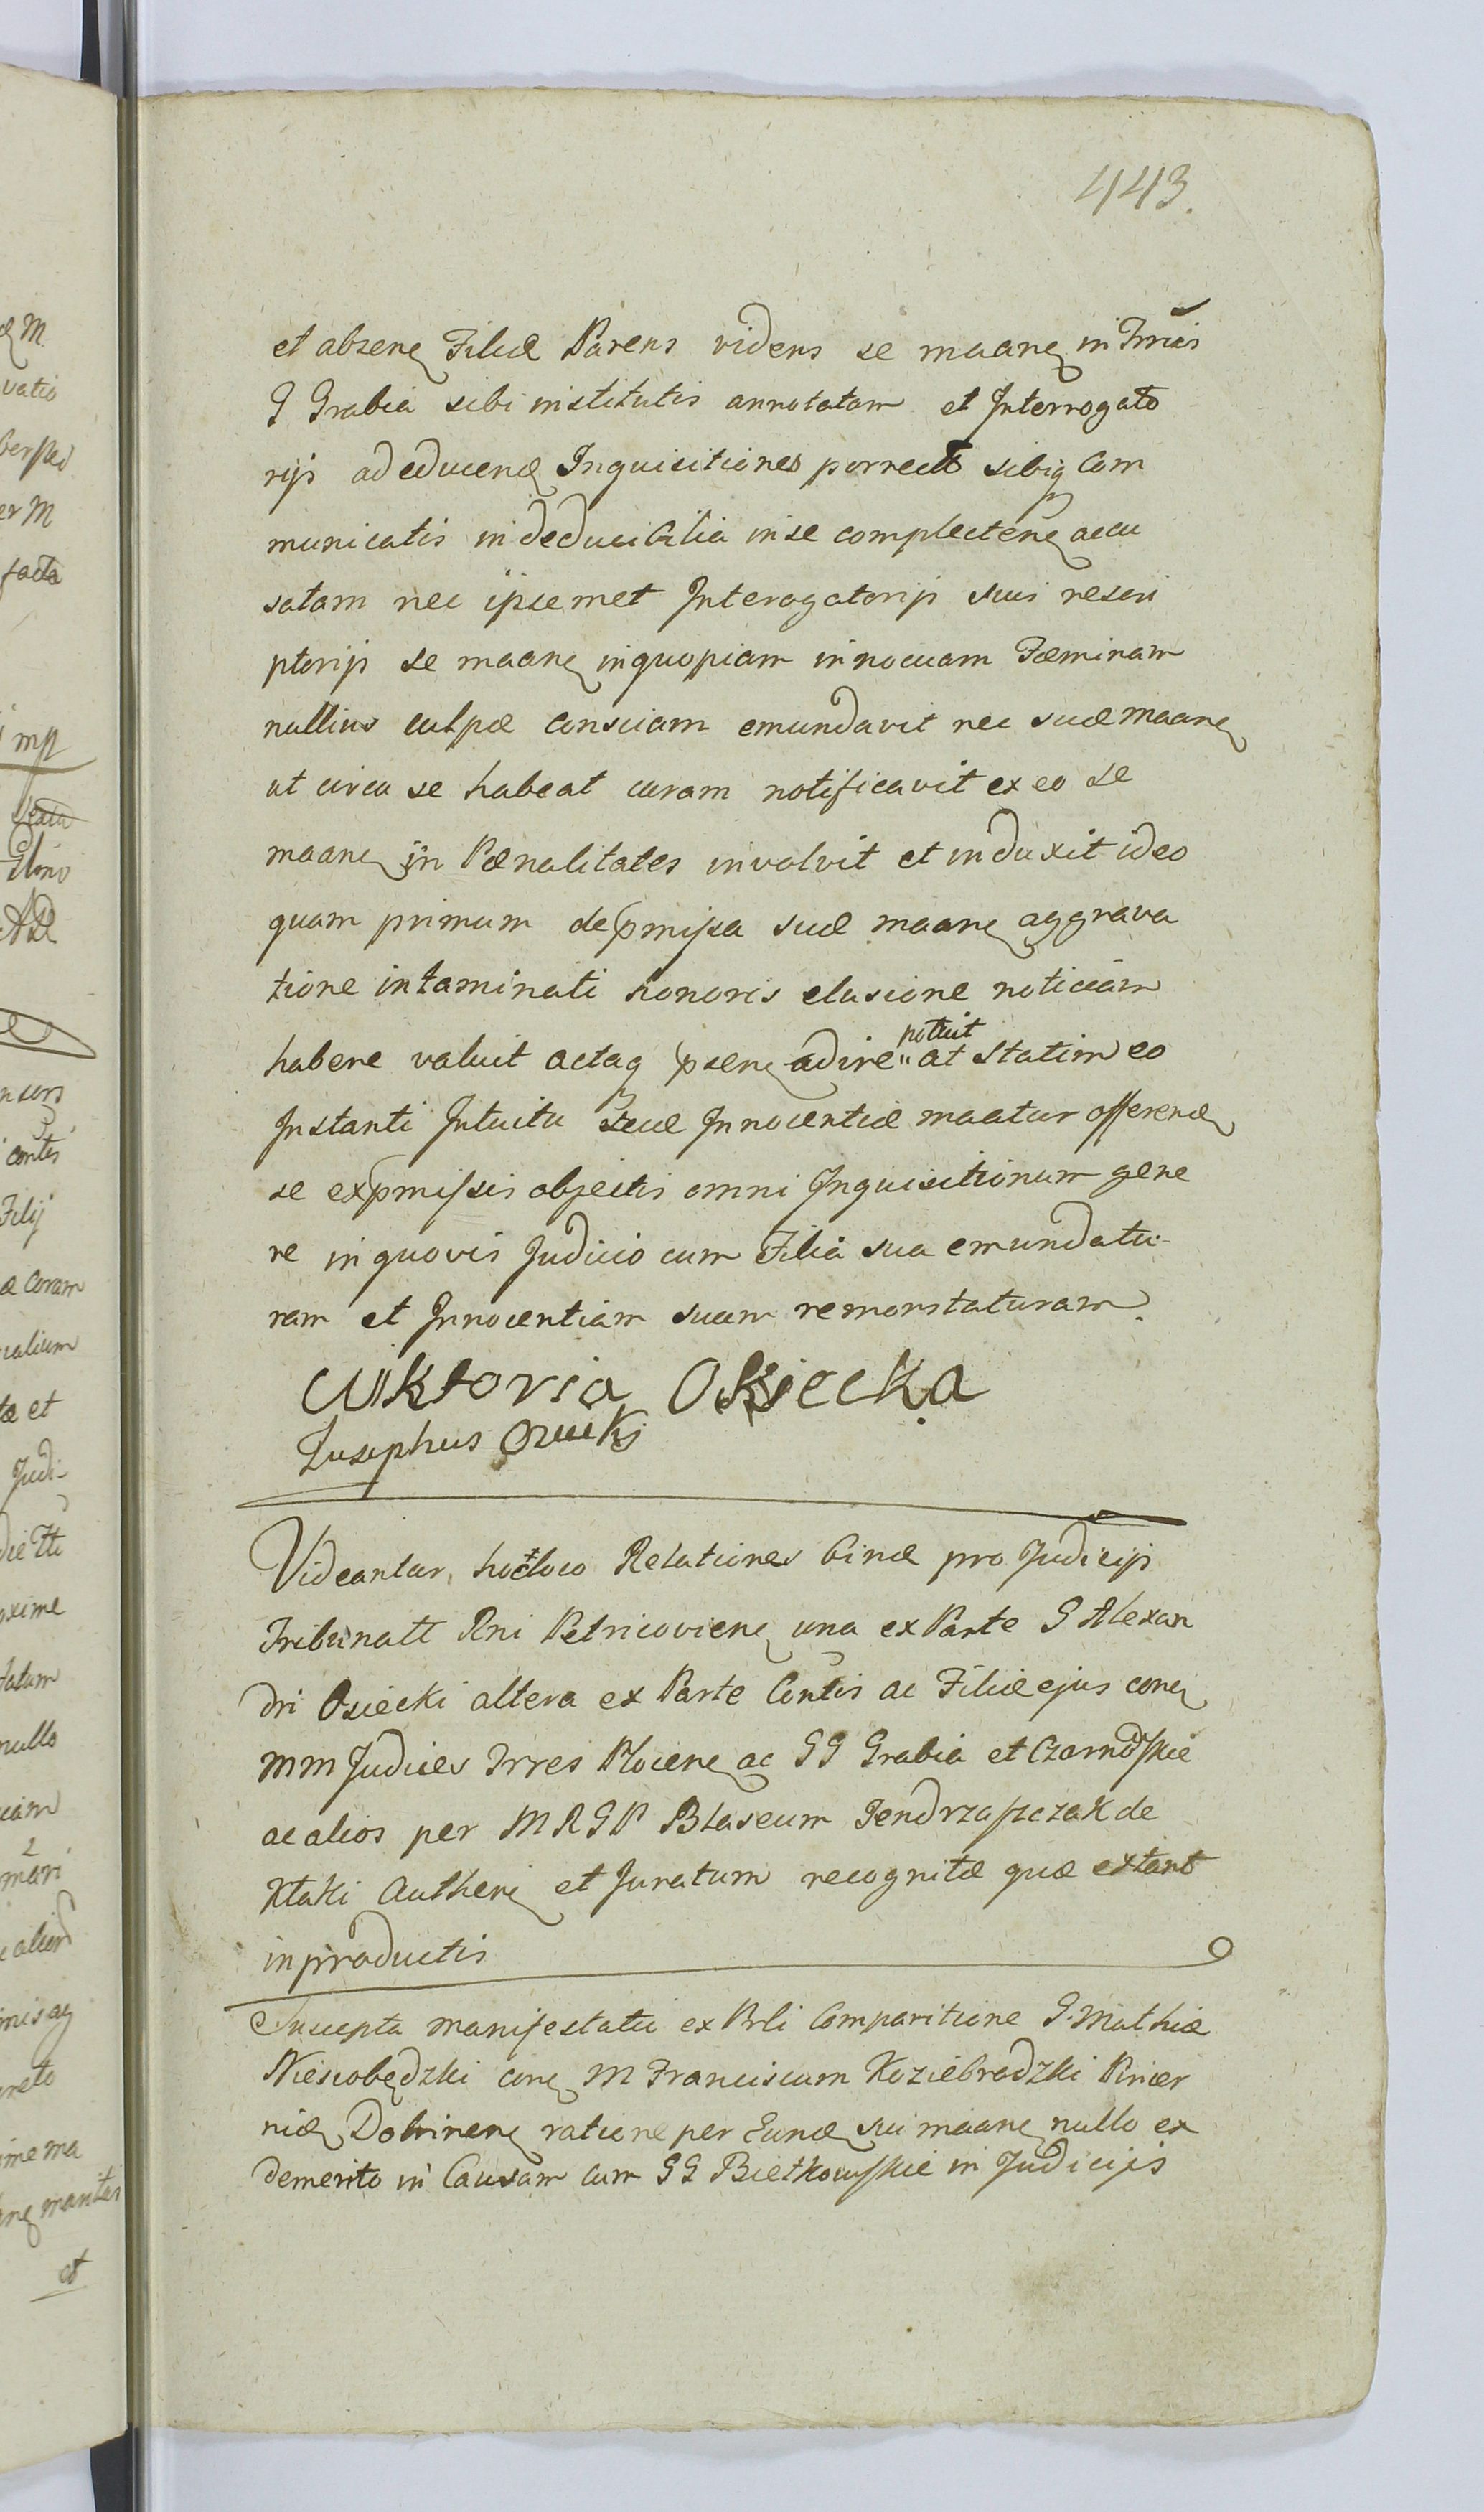 443.
et absenq Filiæ Parens videns se maanq in Trmis
G Grabia sibi institutis annotatam et Interrogato
rijs ad educenđ Inquisitiones porrectis sibiq Com
municatis in deducibilia in se complectenq accu
satam nec ipsemet Interogatorijs suis rescri
ptorijs se maanq in quopiam innocuam Fæminam
nullius culpæ consciam emundavit nec suæ maanq
ut circa se habeat curam notificavit ex eo se
maanq in Pænalitates involvit et induxit ideo
quam primum de pmissa suæ maanq aggrava
tione intaminati honoris elusione noticiam
habere valuit actaq psenq adire " potuit at statim eo
Instanti Intuitu suæ Innocentiæ maatur offerenđ
se ex pmissis objectis omni Inquisitionum gene
re in quovis Judicio cum Filia sua emundatu-
ram et Innocentiam suam remonstaturam.
Wiktoria Osiecka
Josephus
Videantur hoc loco Relationes binæ pro Judicijs
Tribunatt Rni Petricovienq una ex Parte G Alexan
dri Osiecki altera ex Parte Contis ac Filiæ ejus conq
MM Judices Trres Plocenq ac GG Grabia et Czarnowskie
ac alios per MRGP Blaseum Jendrzaszczak de
Ktaki Authenq et Juratum recognitæ quæ extant
in productis
Suscepta manifestatii ex Prli Comparitione G. Mathiæ
Niesiobędzki conq M Franciscum Koziebrodzki Pincer
niđ Dobrinenq ratione per Eunđ sui maanq nullo ex
demerito in Causam cum GG Bietkowskie in Judicijs